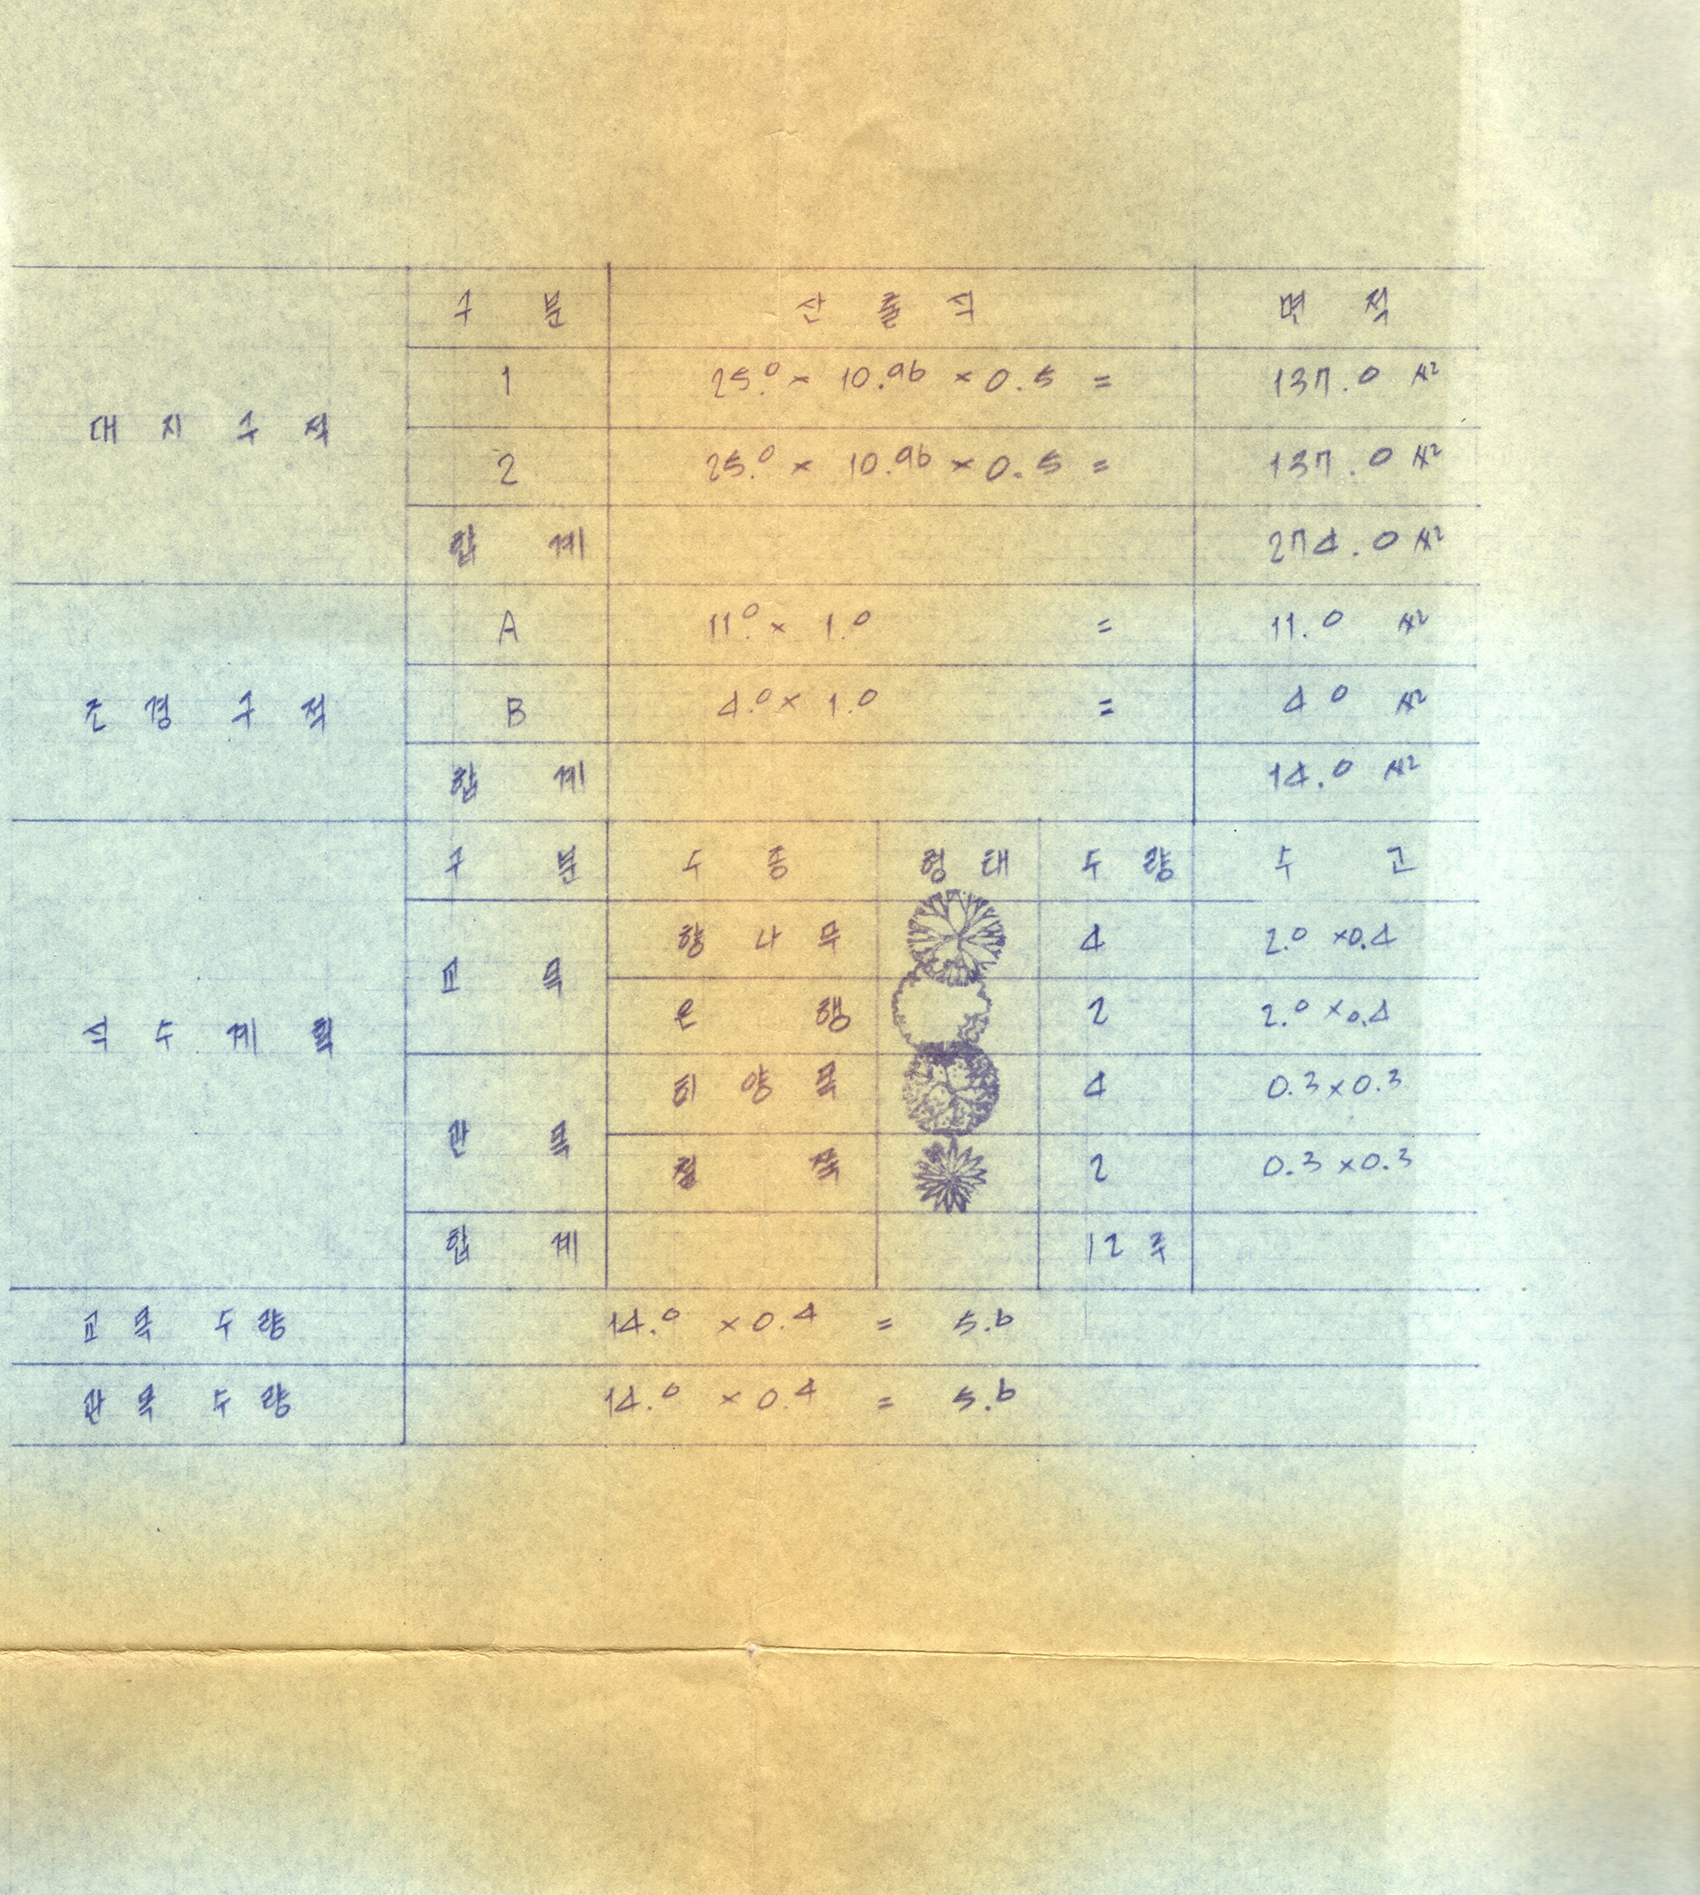 구 분 산 출 식 면 적
1 25.0 × 10.96 × 0.5 = 137.0 M²
대 지 구 적
2 25.0 × 10.96 × 0.5 = 137.0 M²
합 계 274.0 M²
A 11.0 × 1.0 = 11.0 M²
조 경 구 적 B 4.0 × 1.0 = 4.0 M²
합 계 14.0 M²
구 분 수 종 형 태 수 량 수 고
향 나 무 4 2.0 × 0.4
교 목
은 행 2 2.0 × 0.4
식 수 계 획
회 양 목 4 0.3 × 0.3
관 목
철 쭉 2 0.3 × 0.3
합 계 12 주
교 목 수 량 14.0 × 0.4 = 5.6
관 목 수 량 14.0 × 0.4 = 5.6